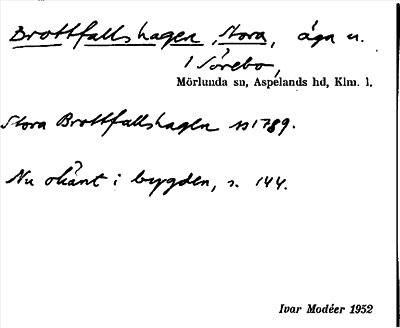 Brottfallshagen, Stora, äga u.
/ Sörebo,
Mörlunda sn, Aspelands hd, Klm. l.
Stora Brottfallshagen 1789.
Nu okänt i bygden, s. 144.
Ivar Modéer 1952